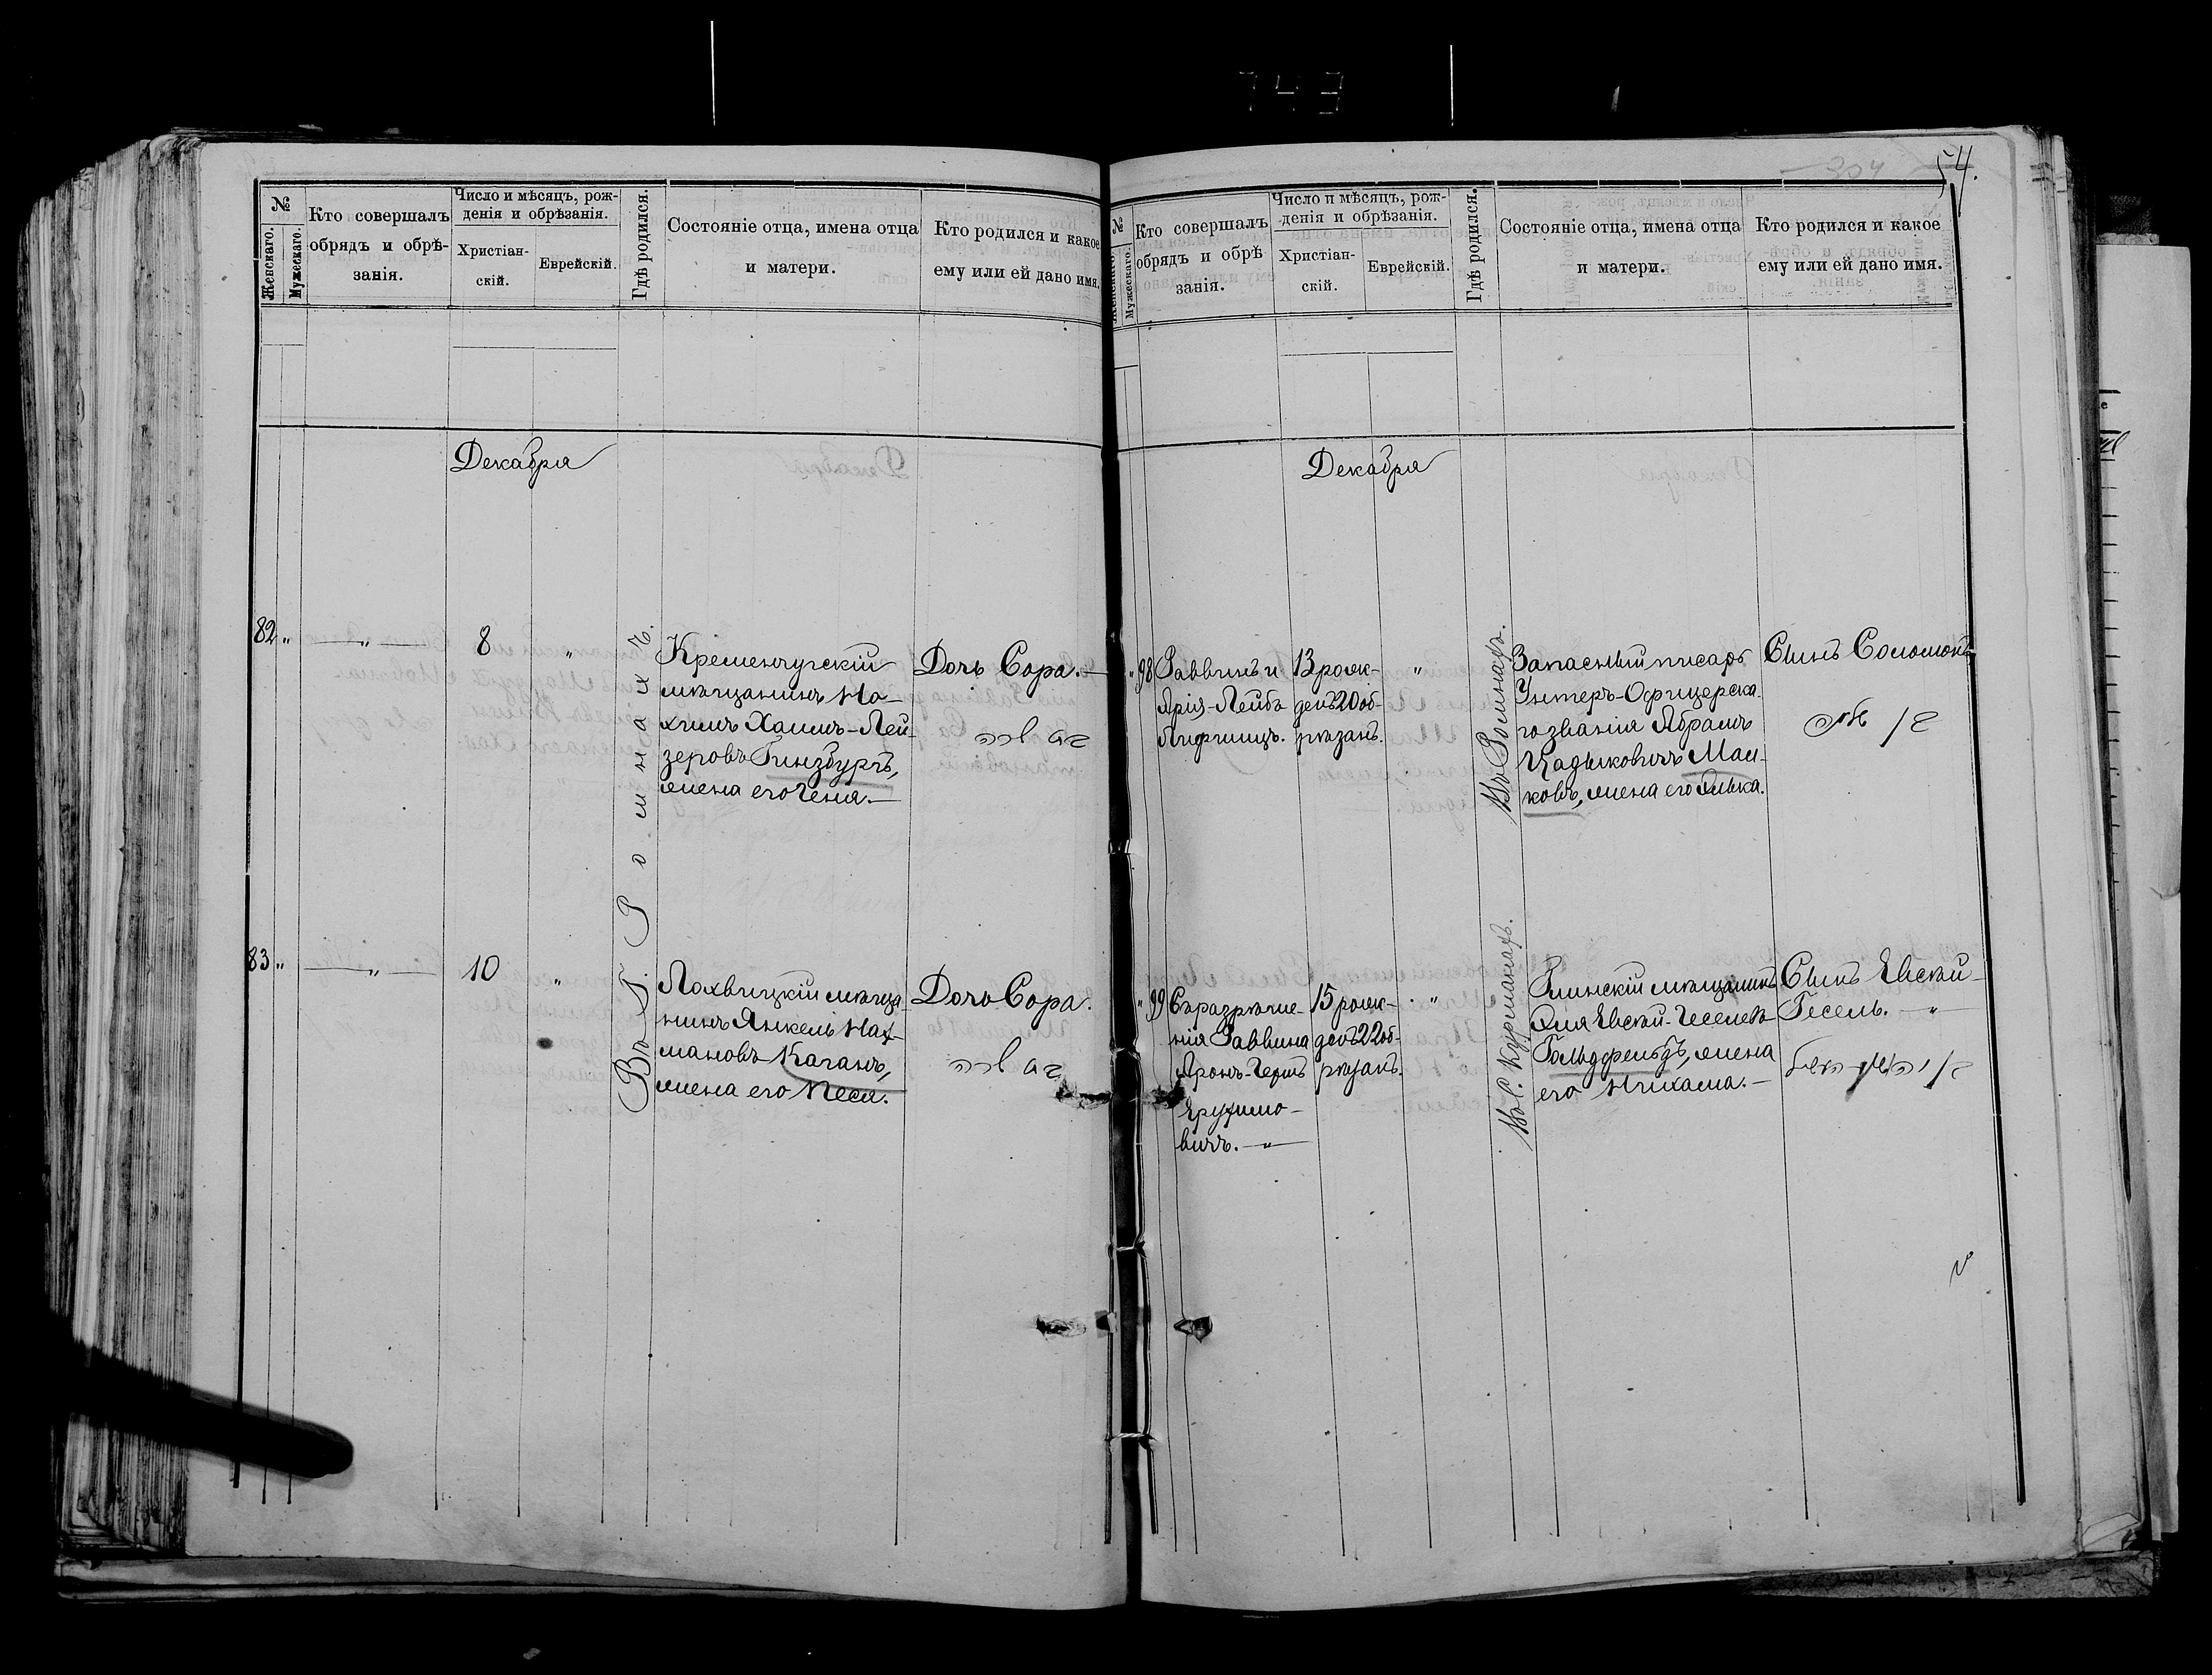 743
304
54.
№
Женскаго.
Мужескаго.
Кто совершалъ
обрядъ и обрѣ-
занія.
Число и мѣсяцъ, рож-
денія и обрѣзанія.
Христіан-
скій.
Еврейскій.
Гдѣ родился.
Состояніе отца, имена отца
и матери.
Кто родился и какое
ему или ей дано имя.
Декабря
82 „
— „ —
8
„
Въ Г. Ромнахъ.
Кременчугскій
мѣщанинъ На-
химъ Хаимъ-Лей-
зеровъ Гинзбургъ,
жена его Геня.—
Дочь Сора.—
בת שרה
83 „
— „ —
10
„
Лохвицкій мѣща
нинъ Янкель Нах-
мановъ Каганъ,
жена его Песя.
Дочь Сора.
בת שרה
№
Женскаго.
Мужескаго.
Кто совершалъ
обрядъ и обрѣ
занія.
Число и мѣсяцъ, рож-
денія и обрѣзанія.
Христіан-
скій.
Еврейскій.
Гдѣ родился.
Состояніе отца, имена отца
и матери.
Кто родился и какое
ему или ей дано имя.
Декабря
„ 98
Раввинъ и
Арія-Лейбъ
Лифшицъ.
13 рож-
денъ 20 об-
рѣзанъ.
„
Въ Ромнахъ.
Запасный писарь
Унтеръ-Офицерска-
го званія Абрамъ
Цадыковичъ Маш-
ковъ, жена его Элька.
Сынъ Соломонъ
בן שלמה
„ 99
Съ разрѣше-
нія Раввина
Аронъ-Гершъ
Ерухимо-
вичъ. — „ —
15 рож-
денъ 22 об-
рѣзанъ.
„
Въ С. Курманахъ.
Глинскій мѣщанинъ
Эля Евсѣй-Геселевъ
Гольдфельдъ, жена
его Нихама.—
Сынъ Евсѣй-
Гесель. — „ —
בן יהושע העשיל